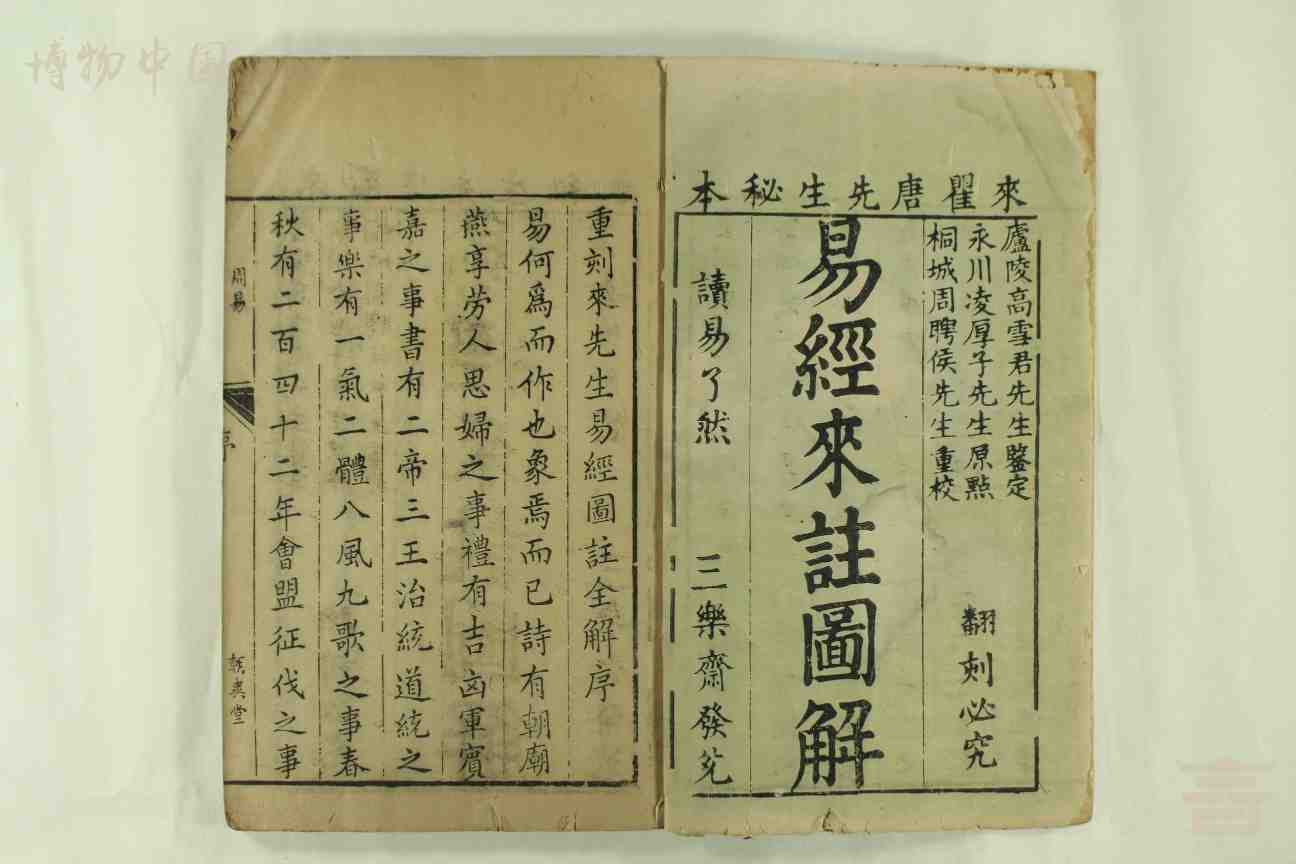 博物中国
來瞿唐先生秘本
廬陵高雪君先生鑒定
永川凌厚子先生原點
桐城周聘侯先生重校
翻刻必究
易經來註圖解
讀易了然
三樂齋發兌
重刻來先生易經圖註全解序
易何爲而作也象焉而已詩有朝廟
燕享勞人思婦之事禮有吉凶軍賓
嘉之事書有二帝三王治統道統之
事樂有一氣二體八風九歌之事春
秋有二百四十二年會盟征伐之事
周易
序